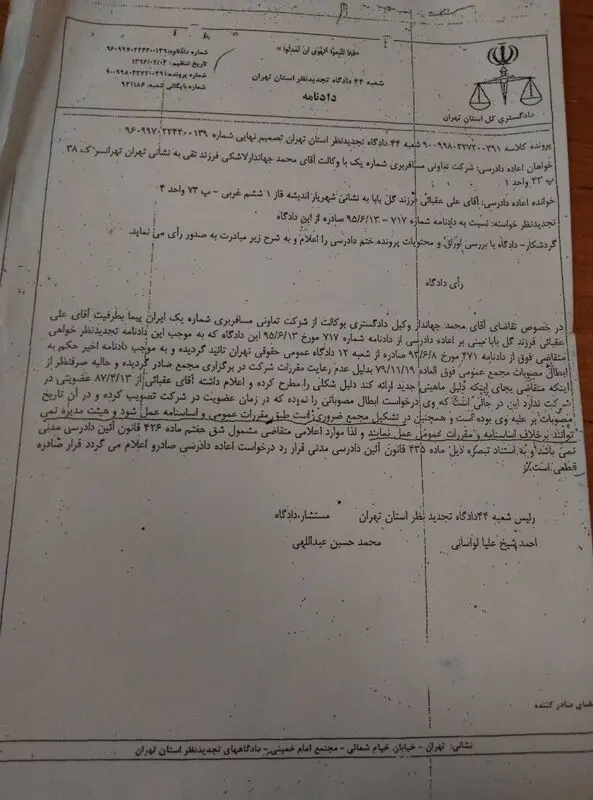 «فلا تتبعوا الهوی ان تعدلوا»
شعبه ۴۴ دادگاه تجدیدنظر استان تهران
دادنامه
شماره دادنامه: ۹۶۰۹۹۷۰۲۲۴۴۰۰۱۳۹
تاریخ تنظیم: ۱۳۹۶/۰۲/۰۲
شماره پرونده: ۹۰۰۹۹۸۰۲۲۷۲۰۰۳۹۱
شماره بایگانی شعبه: ۹۳۱۱۸۶
دادگستری کل استان تهران
پرونده کلاسه ۹۰۰۹۹۸۰۲۲۷۲۰۰۳۹۱ شعبه ۴۴ دادگاه تجدیدنظر استان تهران تصمیم نهایی شماره ۹۶۰۹۹۷۰۲۲۴۴۰۰۱۳۹
خواهان اعاده دادرسی: شرکت تعاونی مسافربری شماره یک با وکالت آقای محمد جهاندارلاشکی فرزند تقی به نشانی تهران تهرانسر ک ۳۸
پ ۲۳ واحد ۱
خوانده اعاده دادرسی: آقای علی عقبائی فرزند گل بابا به نشانی شهریار اندیشه فاز ۱ ششم غربی - پ ۷۳ واحد ۴
تجدیدنظر خواسته: نسبت به دادنامه شماره ۷۱۷ - ۹۵/۶/۱۳ صادره از این دادگاه
گردشکار- دادگاه با بررسی اوراق و محتویات پرونده ختم دادرسی را اعلام و به شرح زیر مبادرت به صدور رأی می نماید.
رأی دادگاه
در خصوص تقاضای آقای محمد جهاندار وکیل دادگستری بوکالت از شرکت تعاونی مسافربری شماره یک ایران پیما بطرفیت آقای علی
عقبائی فرزند گل بابا مبنی بر اعاده دادرسی از دادنامه شماره ۷۱۷ مورخ ۹۵/۶/۱۳ این دادگاه که به موجب این دادنامه تجدیدنظر خواهی
متقاضی فوق از دادنامه ۴۷۱ مورخ ۹۳/۶/۸ صادره از شعبه ۱۲ دادگاه عمومی حقوقی تهران تائید گردیده و به موجب دادنامه اخیر حکم به
ابطال مصوبات مجمع عمومی فوق العاده ۷۹/۱۱/۱۹ بدلیل عدم رعایت مقررات شرکت در برگزاری مجمع صادر گردیده و حالیه صرفنظر از
اینکه متقاضی بجای اینکه دلیل ماهیتی جدید ارائه کند دلیل شکلی را مطرح کرده و اعلام داشته آقای عقبائی از ۸۷/۴/۱۳ عضویتی در
شرکت ندارد این در حالی است که وی درخواست ابطال مصوباتی را نموده که در زمان عضویت در شرکت تصویب کرده و در آن تاریخ
مصوبات بر علیه وی بوده است و همچنین در تشکیل مجمع ضروری است طبق مقررات عمومی و اساسنامه عمل شود و هیئت مدیره نمی
توانند برخلاف اساسنامه و مقررات عمومی عمل نمایند و لذا موارد اعلامی متقاضی مشمول شق هفتم ماده ۴۲۶ قانون آئین دادرسی مدنی
نمی باشد و به استناد تبصره ذیل ماده ۴۳۵ قانون آئین دادرسی مدنی قرار رد درخواست اعاده دادرسی صادرو اعلام می گردد قرار صادره
قطعی است.
رئیس شعبه ۴۴ دادگاه تجدید نظر استان تهران مستشار دادگاه
احمد شیخ علیا لواسانی محمد حسین عبداللهی
صادر کننده
نشانی: تهران - خیابان خیام شمالی - مجتمع امام خمینی - دادگاههای تجدیدنظر استان تهران